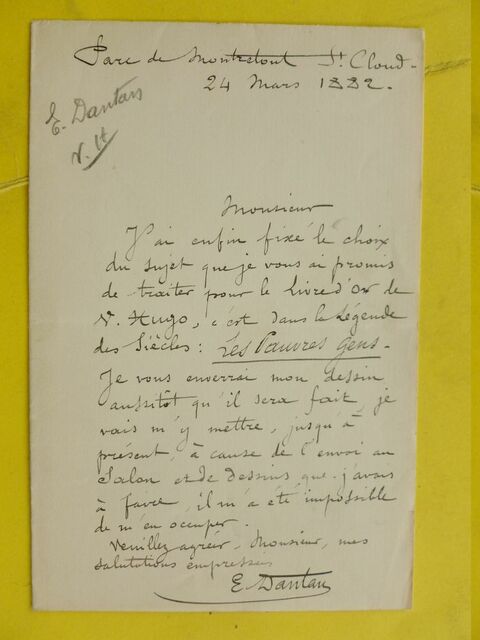 Parc de Montretout St. Cloud.
24 Mars 1882.
E. Dantan
V. H
Monsieur
J'ai enfin fixé le choix
du sujet que je vous ai promis
de traiter pour le Livre d'Or de
V. Hugo, c'est dans la Légende
des Siècles : Les Pauvres Gens.
Je vous enverrai mon dessin
aussitôt qu'il sera fait, je
vais m'y mettre, jusqu'à
présent, à cause de l'envoi au
Salon et de dessins que j'avais
à faire, il m'a été impossible
de m'en occuper.
Veuillez agréer, Monsieur, mes
salutations empressées
E Dantan